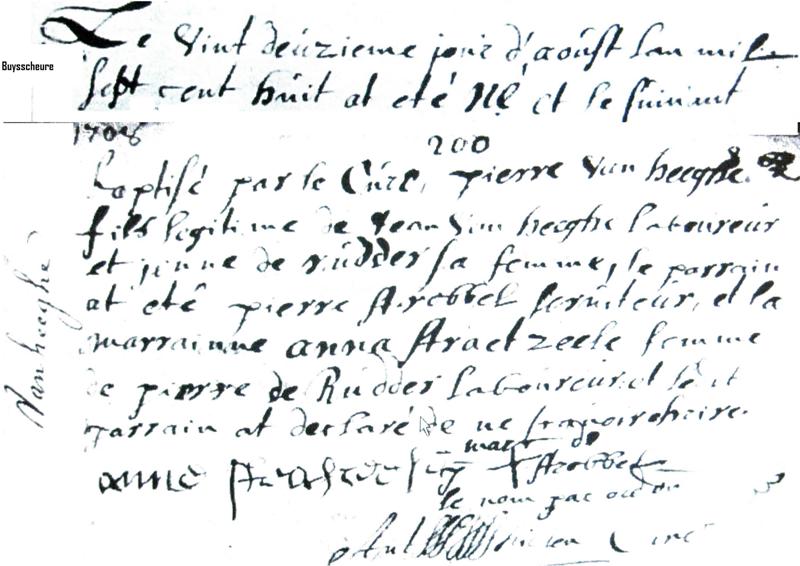 Le vint deuzieme jour d'aoust lan mil
Buysscheure
sept cent huit at eté Né et le suivant
1708
200
baptisé par le Curé, pierre van heeghe
fils legitime de Jean van heeghe laboureur
et jenne de rudder sa femme, le parrain
at eté pierre Strobbel serviteur, et la
marrainne anna Straetzeele femme
de pierre de Rudder laboureur et le dt
parrain at declaré de ne scavoir escrire.
Van heeghe
marq de
anne Strobbel
le nom par
Curé